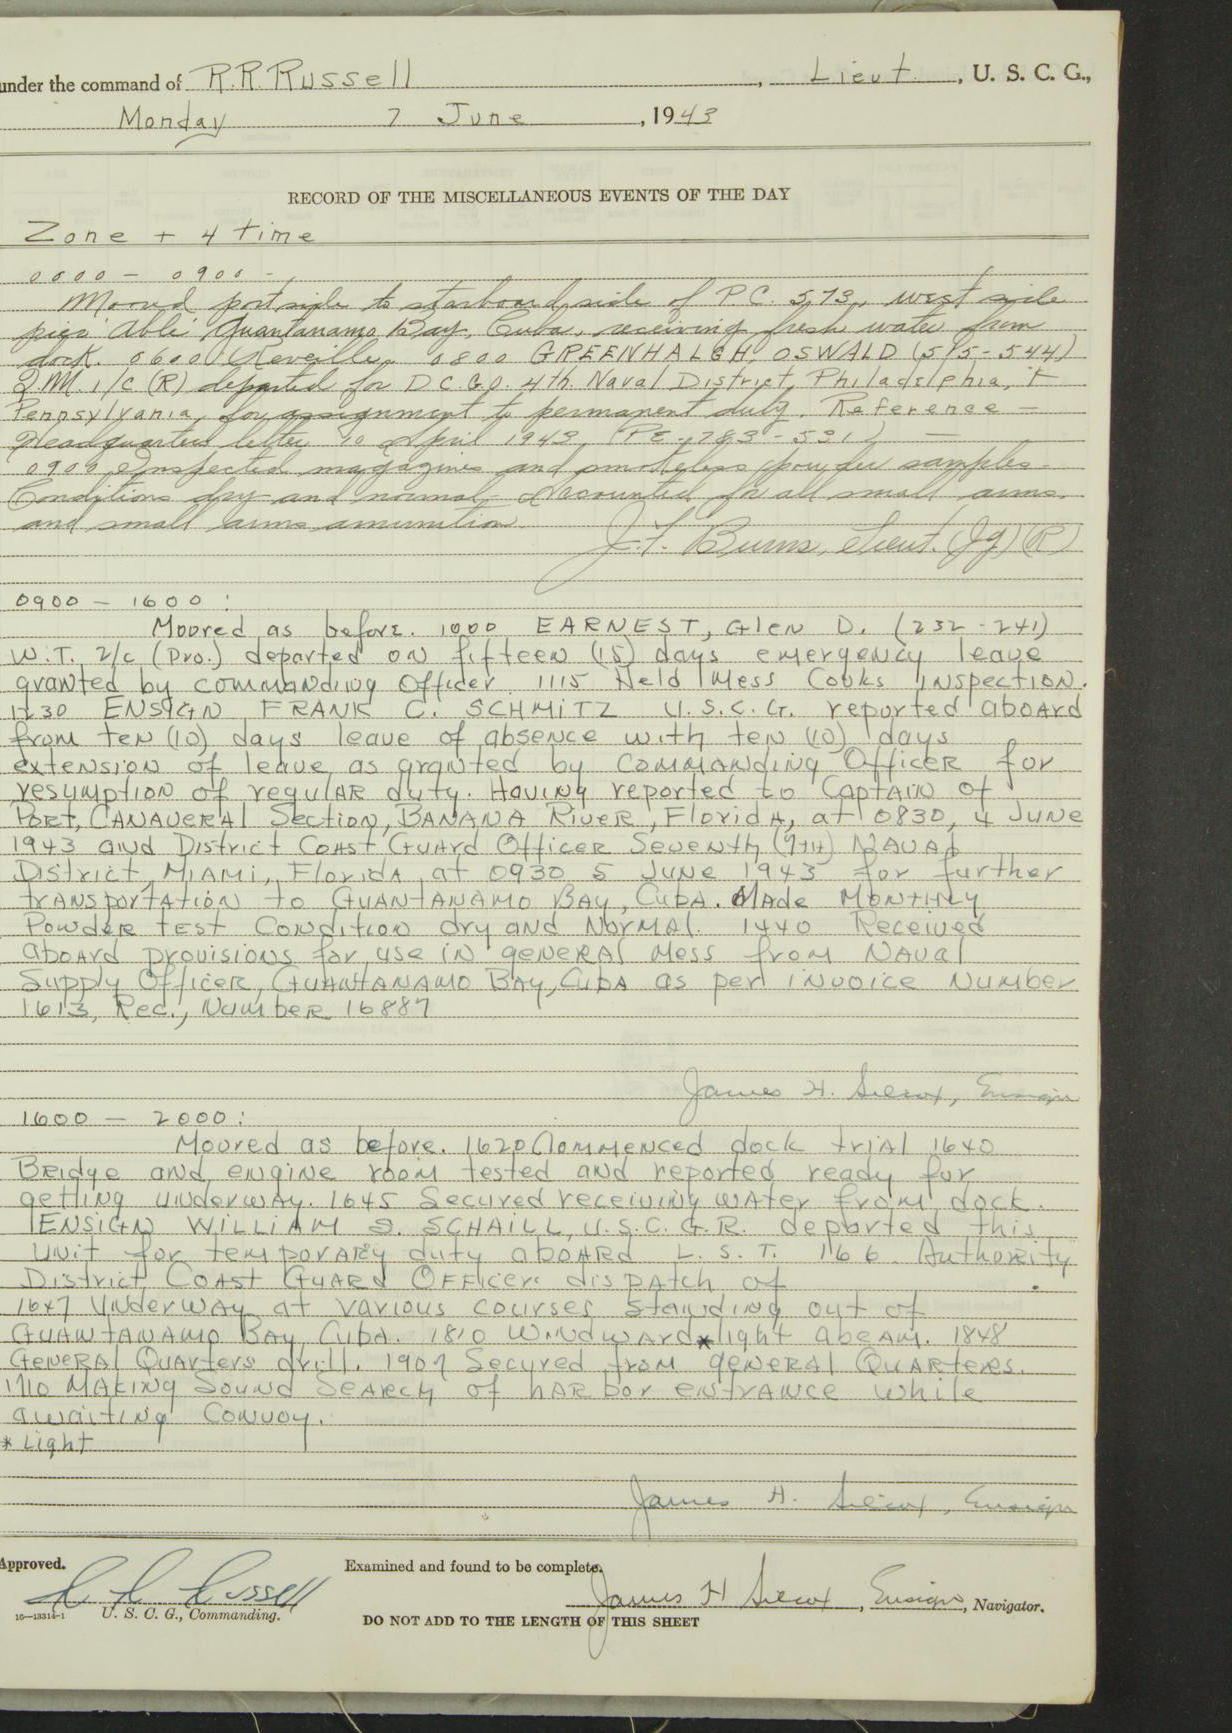 under the command of R.R. Russell, Lieut., U. S. C. G.,
Monday 7 June, 1943
RECORD OF THE MISCELLANEOUS EVENTS OF THE DAY
Zone + 4 time
0000 - 0900 -
Moored portside to starboard side of P.C. 573, west side
pier Able Guantanamo Bay, Cuba, receiving fresh water from
dock. 0600 Reveille. 0800 GREENHALGH, OSWALD (515-544)
Q.M. 1/c (R) departed for D.C.G.O. 4th. Naval District, Philadelphia,
Pennsylvania, for assignment to permanent duty. Reference -
Headquarters letter 10 April 1943, (PE-783-531) -
0900 Inspected magazines and smokeless powder samples -
Conditions dry and normal - Accounted for all small arms.
and small arms amunition.
J.F. Burns, Lieut. (Jg) (R)
0900 - 1600 :
Moored as before. 1000 EARNEST, Glen D. (232-241)
W.T. 2/c (Pro.) departed on fifteen (15) days emergency leave
granted by commanding Officer. 1115 Held Mess Cooks inspection.
1230 ENSIGN FRANK C. SCHMITZ U.S.C.G. reported aboard
from ten (10) days leave of absence with ten (10) days
extension of leave as granted by commanding Officer for
resumption of regular duty. Having reported to Captain of
Port, Canaveral Section, Banana River, Florida, at 0830, 4 June
1943 and District Coast Guard Officer Seventh (7th) Naval
District, Miami, Florida at 0930 5 June 1943 for further
transportation to Guantanamo Bay, Cuba. Made Monthly
Powder test Condition dry and Normal. 1440 Received
aboard provisions for use in general mess from Naval
Supply Officer, Guantanamo Bay, Cuba as per invoice Number
1613, Rec., Number 16887
James H. Silcox, Ensign
1600 - 2000 :
Moored as before. 1620 Commenced dock trial 1640
Bridge and engine room tested and reported ready for
getting underway. 1645 Secured receiving water from dock.
ENSIGN WILLIAM S. SCHAILL, U.S.C.G.R. departed this
unit for temporary duty aboard L.S.T. 166. Authority
District Coast Guard Officer dispatch of .
1647 Underway at various courses standing out of
Guantanamo Bay Cuba. 1810 Windward * light abeam. 1848
General Quarters drill. 1907 Secured from general Quarters.
1910 Making Sound Search of harbor entrance while
awaiting Convoy.
* Light
James H. Silcox, Ensign
Approved. Examined and found to be complete.
R R Russell James H Silcox, Ensign, Navigator.
16-13314-1 U. S. C. G., Commanding.
DO NOT ADD TO THE LENGTH OF THIS SHEET